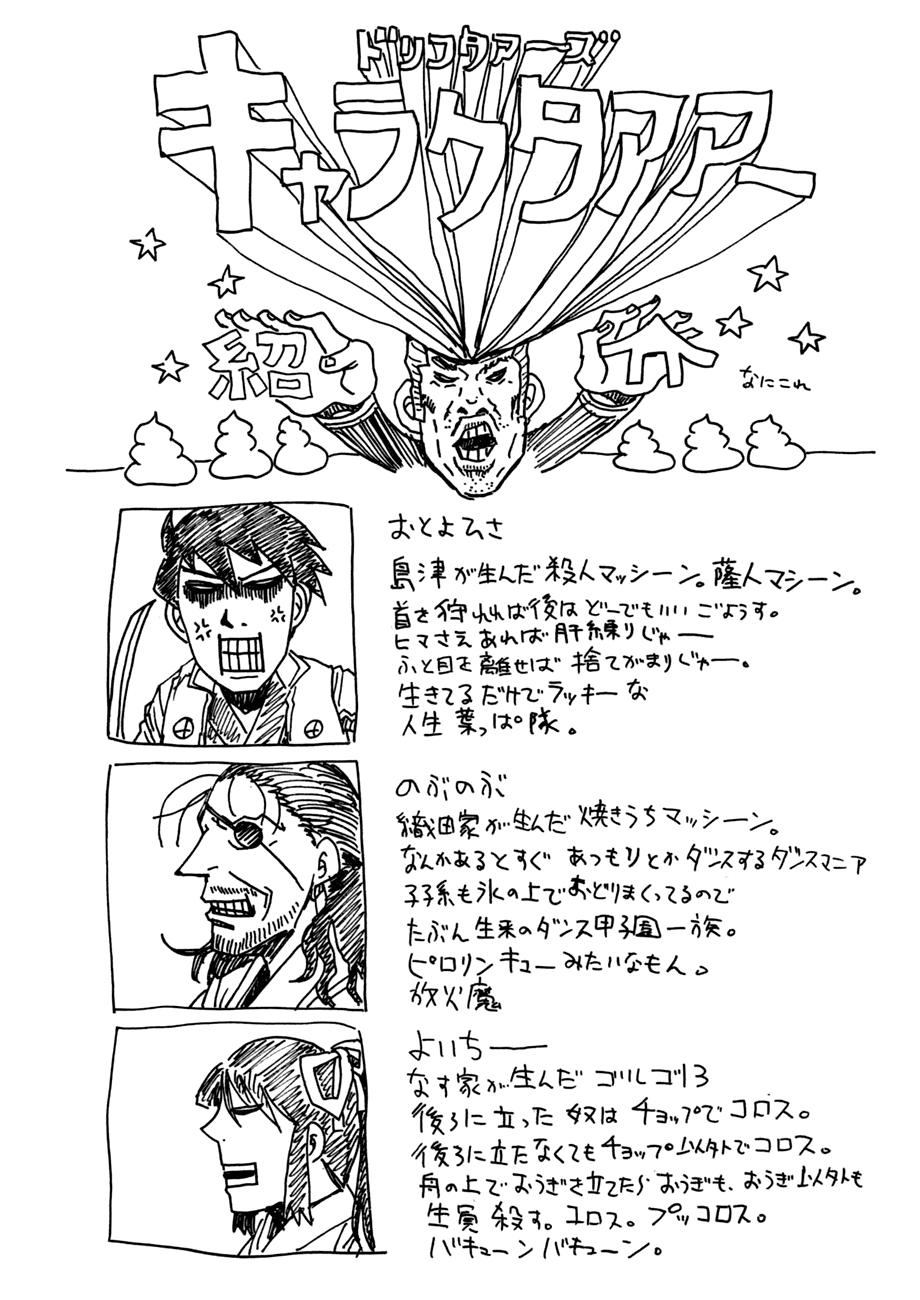 ドリフタァーズ
キャラクタアァー
紹介
なにこれ
おとよひさ
島津が生んだ殺人マッシーン。薩人マシーン。
首さ狩れれば後はどーでもいいごようす。
ヒマさえあれば肝練りじゃー
ふと目を離せば捨てがまりじゃー。
生きてるだけでラッキーな
人生葉っぱ隊。
のぶのぶ
織田家が生んだ焼きうちマッシーン。
なんかあるとすぐあつもりとかダンスするダンスマニア
子孫も氷の上でおどりまくってるので
たぶん生来のダンス甲子園一族。
ピロリンキューみたいなもん。
放火魔
よいちー
なす家が生んだゴルゴ13
後ろに立った奴はチョップでコロス。
後ろに立たなくてもチョップ以外でコロス。
舟の上でおうぎさ立てたらおうぎも、おうぎ以外も
全員殺す。コロス。ブッコロス。
バキューンバキューン。